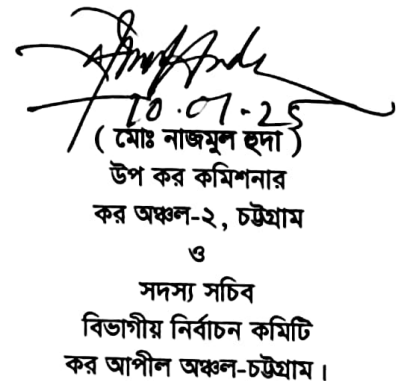 10.07.25
( মোঃ নাজমুল হুদা )
উপ কর কমিশনার
কর অঞ্চল-২, চট্টগ্রাম
ও
সদস্য সচিব
বিভাগীয় নির্বাচন কমিটি
কর আপীল অঞ্চল-চট্টগ্রাম।